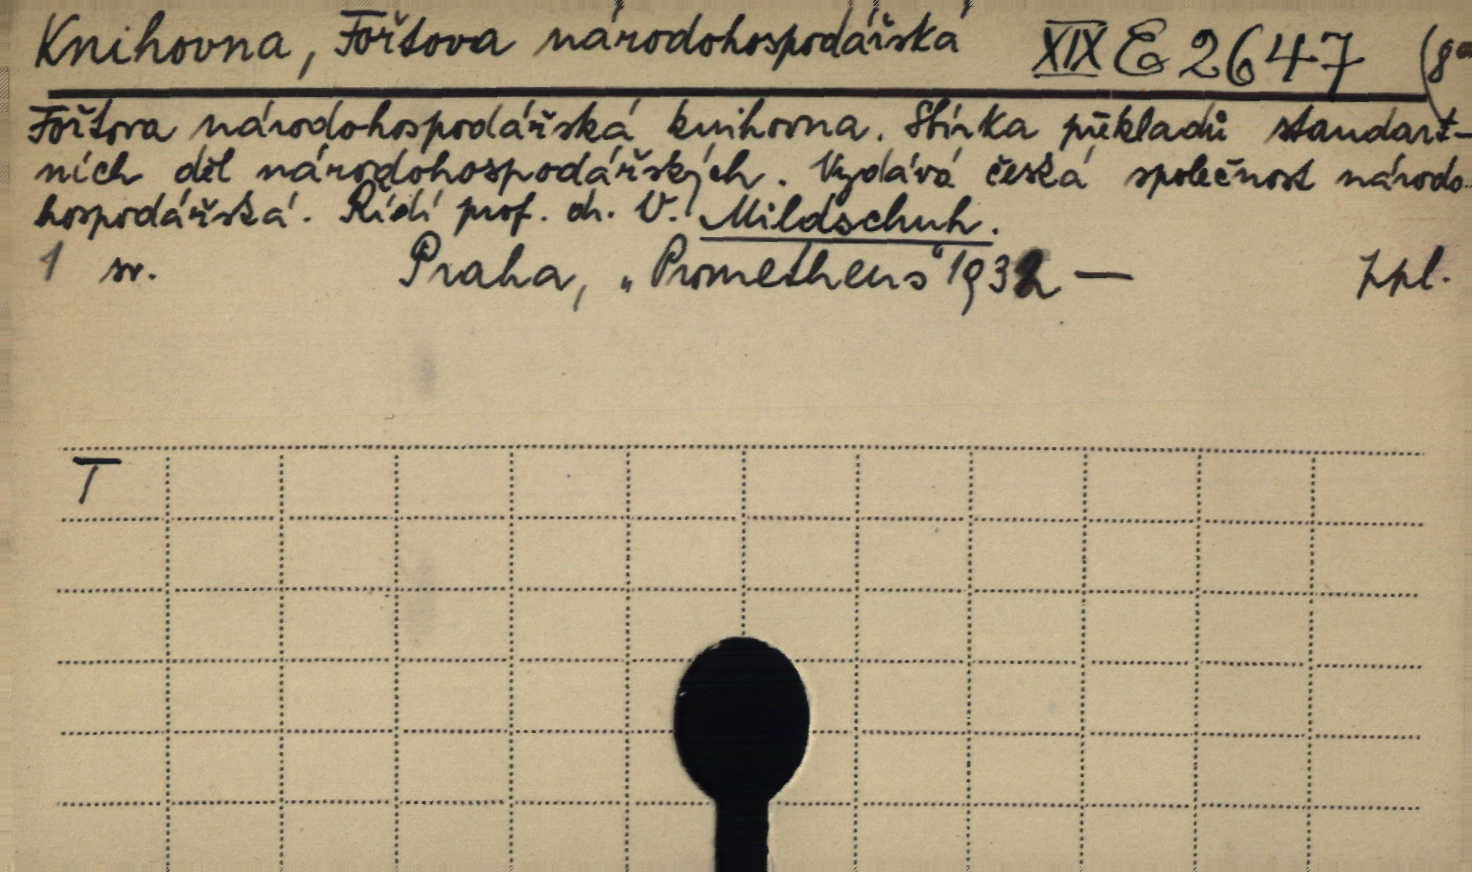 Knihovna, Fořtova národohospodářská XIX E 2647
Fořtova národohospodářská knihovna. Sbírka překladů standart-
ních děl národohospodářských. Vydává česká společnost národo-
hospodářská. Řídí prof. dr. V. Mildschuh.
1 sv. Praha, „Prometheus“ 1932 — ppl.
T